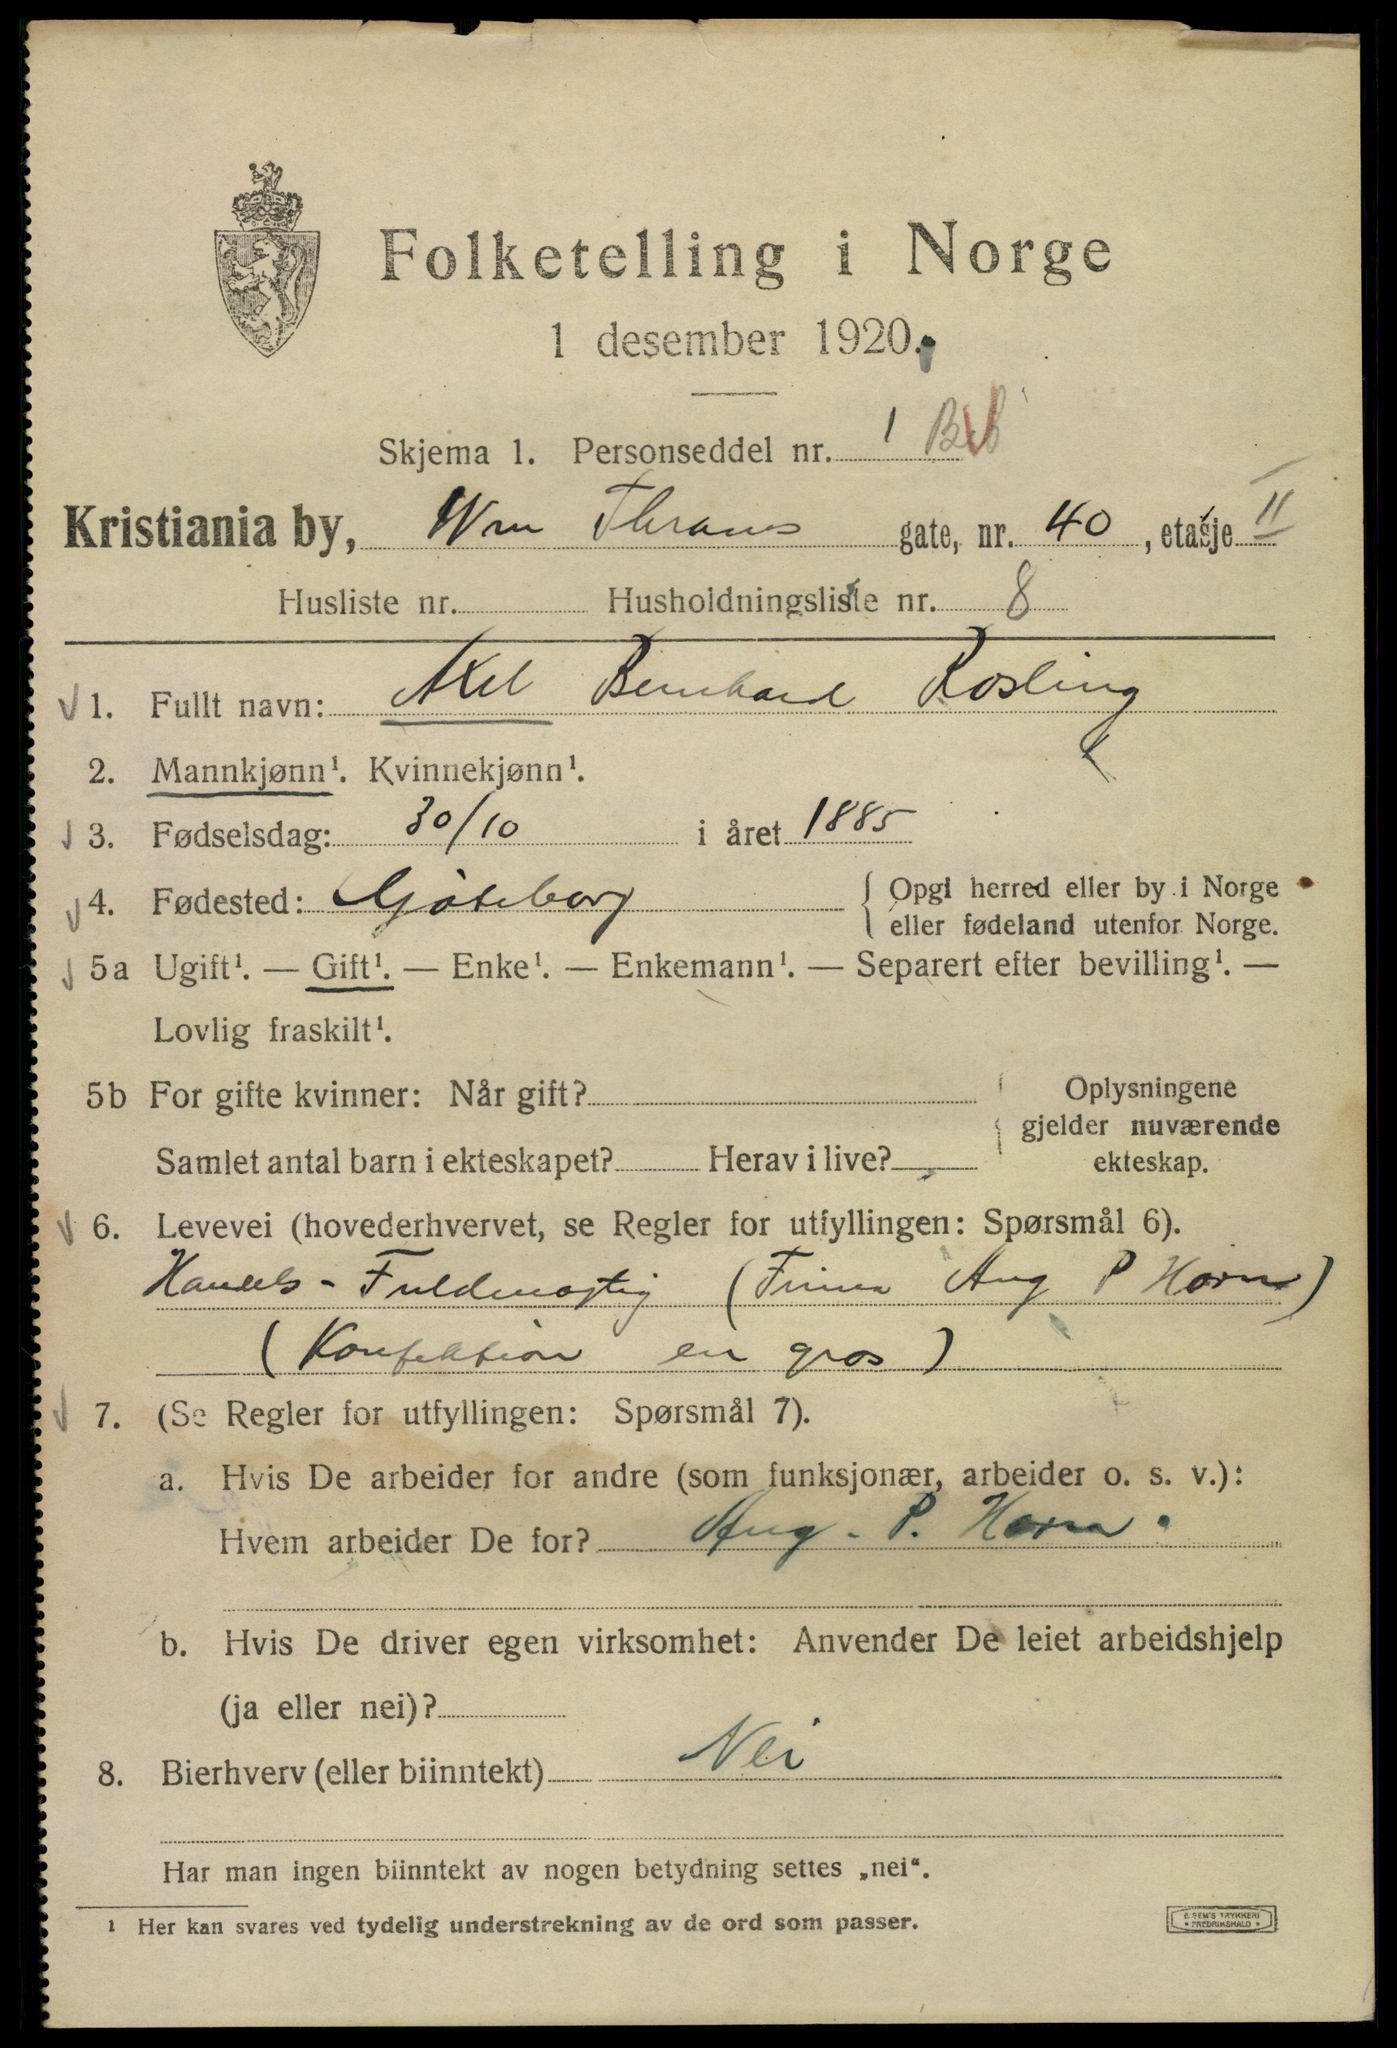 Folketelling i Norge
1 desember 1920.
Skjema 1. Personseddel nr. 1
Kristiania by, Wm Thranes gate, nr. 40, etasje II
Husliste nr. Husholdningsliste nr. 8
1. Fullt navn: Axel Bernhard Rosling
2. Mannkjønn¹. Kvinnekjønn¹.
3. Fødselsdag: 30/10 i året 1885
4. Fødested: Göteborg { Opgi herred eller by i Norge
eller fødeland utenfor Norge.
5a Ugift¹. — Gift¹. — Enke¹. — Enkemann¹. — Separert efter bevilling¹. —
Lovlig fraskilt¹.
5b For gifte kvinner: Når gift? Oplysningene
gjelder nuværende
Samlet antal barn i ekteskapet? Herav i live? ekteskap.
6. Levevei (hovederhvervet, se Regler for utfyllingen: Spørsmål 6).
Handels - Fuldmægtig (Firma Aug P Horn)
(Konfektion en gros)
7. (Se Regler for utfyllingen: Spørsmål 7).
a. Hvis De arbeider for andre (som funksjonær, arbeider o. s. v.):
Hvem arbeider De for? Aug. P. Horn.
b. Hvis De driver egen virksomhet: Anvender De leiet arbeidshjelp
(ja eller nei)?
8. Bierhverv (eller biinntekt) Nei
Har man ingen biinntekt av nogen betydning settes „nei“.
1 Her kan svares ved tydelig understrekning av de ord som passer.
E. SEM'S TRYKKERI
* FREDRIKSHALD *